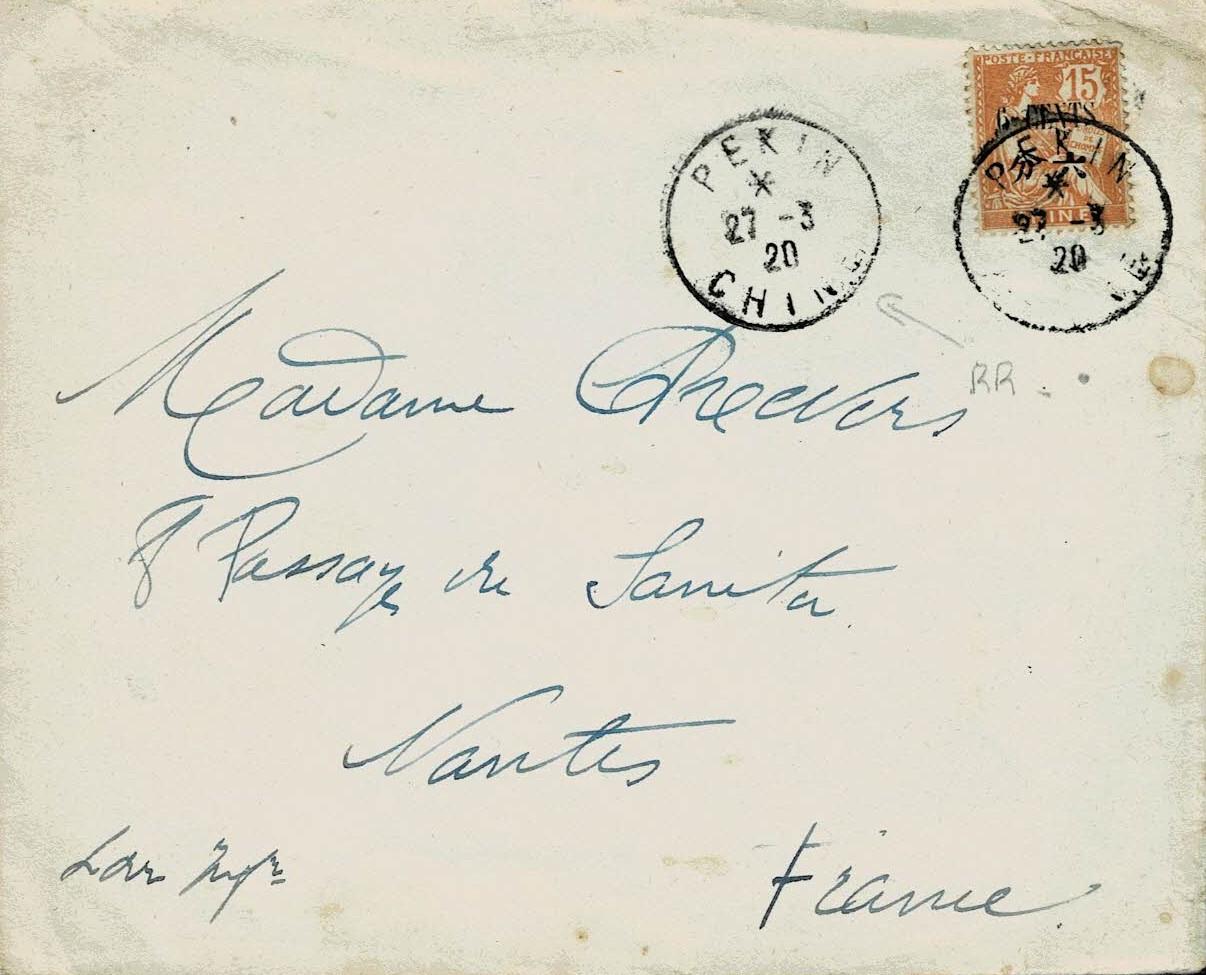 POSTE FRANÇAISE
15
6 CENTS
分六
CHINE
PEKIN
27 -3
20
CHINE
PEKIN
27 -3
20
NE
RR
Madame
8 Passage du Sanitat
Nantes
France